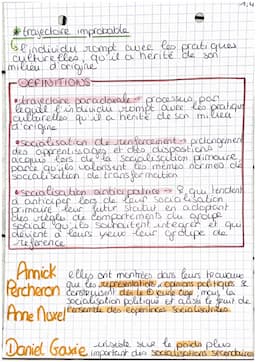 1,4
• trajectoire improbable
↳ l'individu rompt avec les pratiques
culturelles, qu'il a hérité de son
milieu d'origine
DEFINITIONS
• trajectoire paradoxale → processus par
lequel l'individu rompt avec les pratiques
culturelles qu'il a hérité de son milieu
d'origine
• socialisation de renforcement → prolongement
des apprentissages et des dispositions
acquis lors de la socialisation primaire,
parce qu'ils valorisent les mêmes normes de
socialisation de transformation
• socialisation anticipatrice → S. qui tendent
à anticiper lors de leur socialisation
primaire leur futur statut en adoptant
des règles de comportements du groupe
social qu'ils souhaitent intégrer et qui
devient à leurs yeux leur groupe de
référence
Annick
Percheron
Anne Muxel
elles ont montrées dans leurs travaux
que les représentations, opinions politiques se
construisent dès le
socialisation politique et aussi le fruit de
l'ensemble des expériences socialisatrices
Daniel Gaxie
insiste sur le poids plus
important des socialisation secondaires